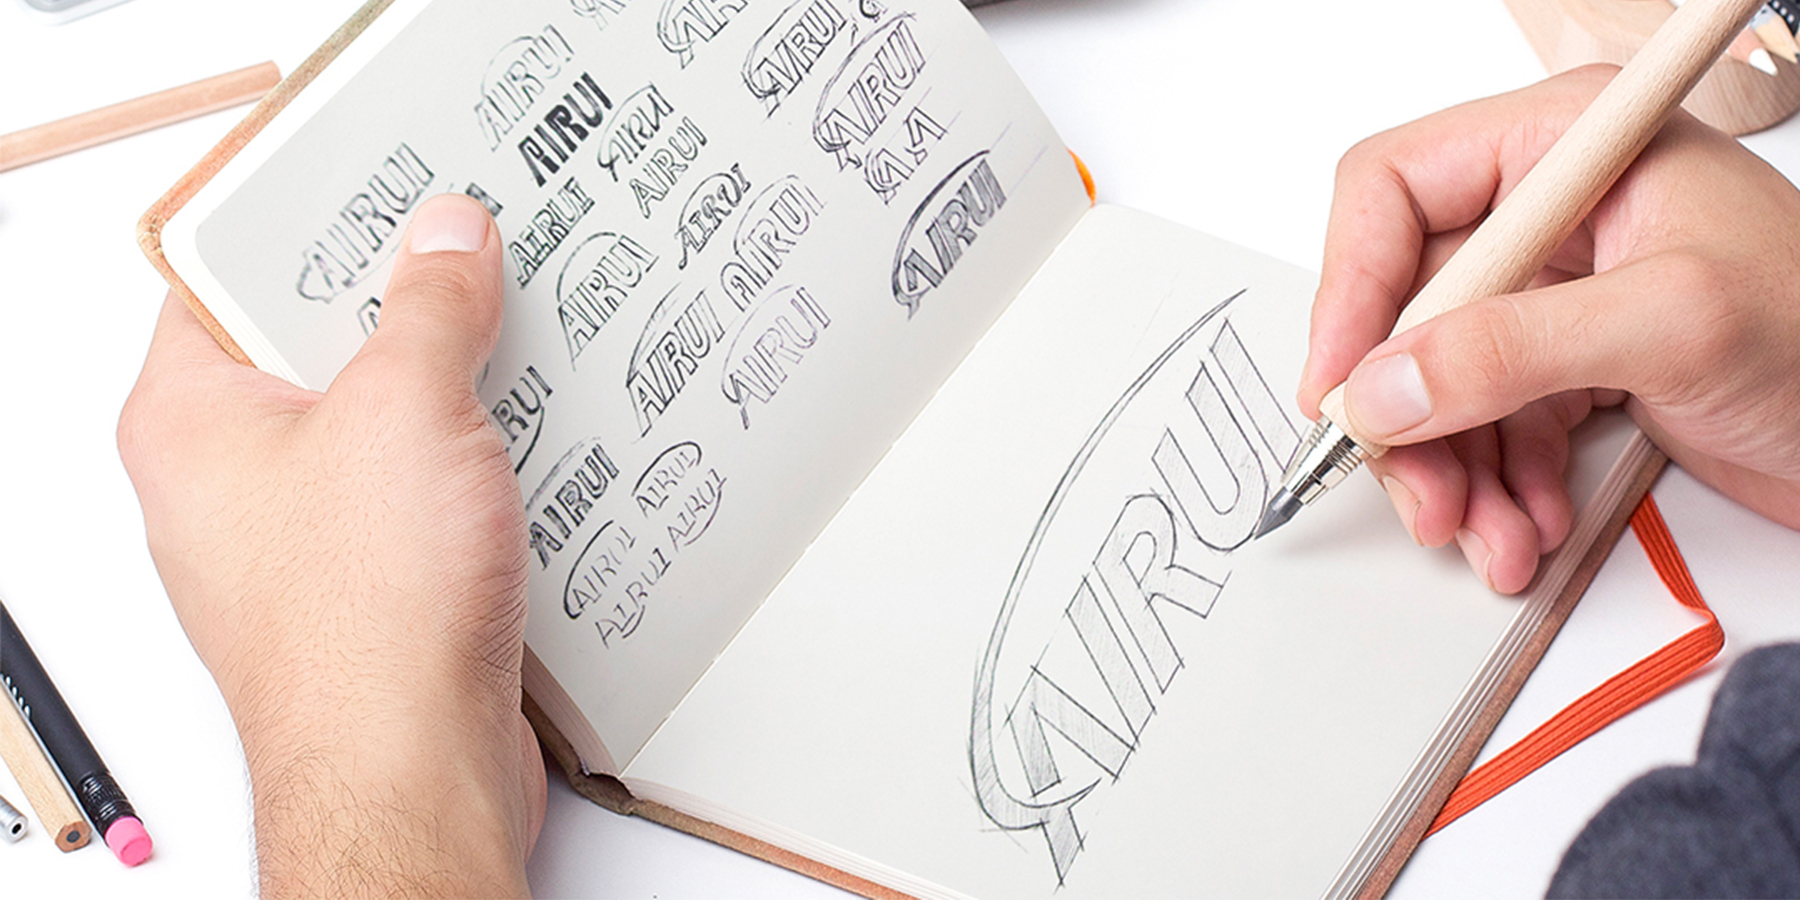 AIRUI
AIRUI
AIRUI
AIRUI
AIRUI
AIRUI
AIRUI
AIRUI
AIRUI
AIRUI
AIRUI
AIRUI
AIRUI
AIRUI
AIRUI
AIRUI
AIRUI
AIRUI
AIRUI
AIRUI
AIRUI